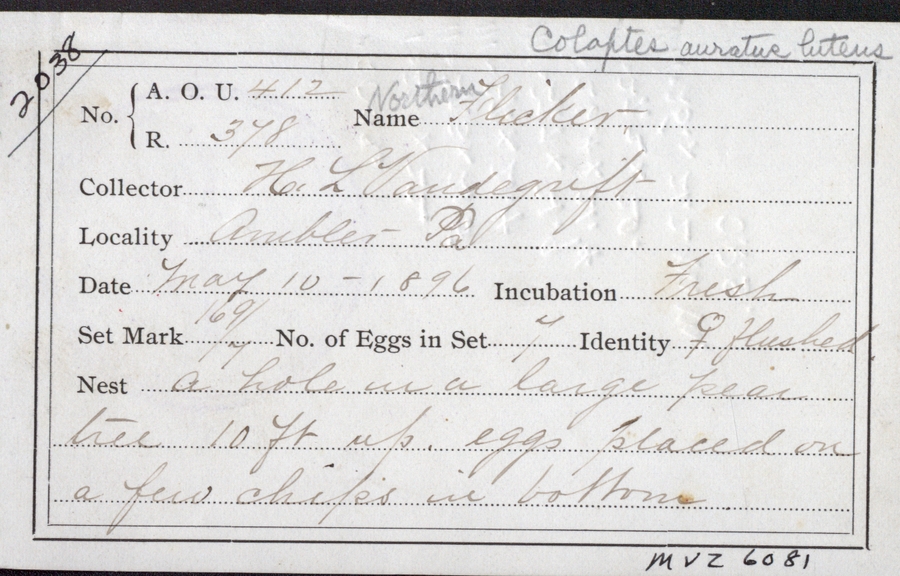 Colaptes auratus luteus
2038
No. { A. O. U. 412
R. 378
Name Northern Flicker
Collector H. L Vandegrift
Locality Ambler Pa
Date May 10 - 1896 Incubation Fresh
Set Mark 169/7 No. of Eggs in Set 7 Identity ♀ flushed
Nest a hole in a large pear
tree 10 ft up. eggs placed on
a few chips in bottom
MVZ 6081